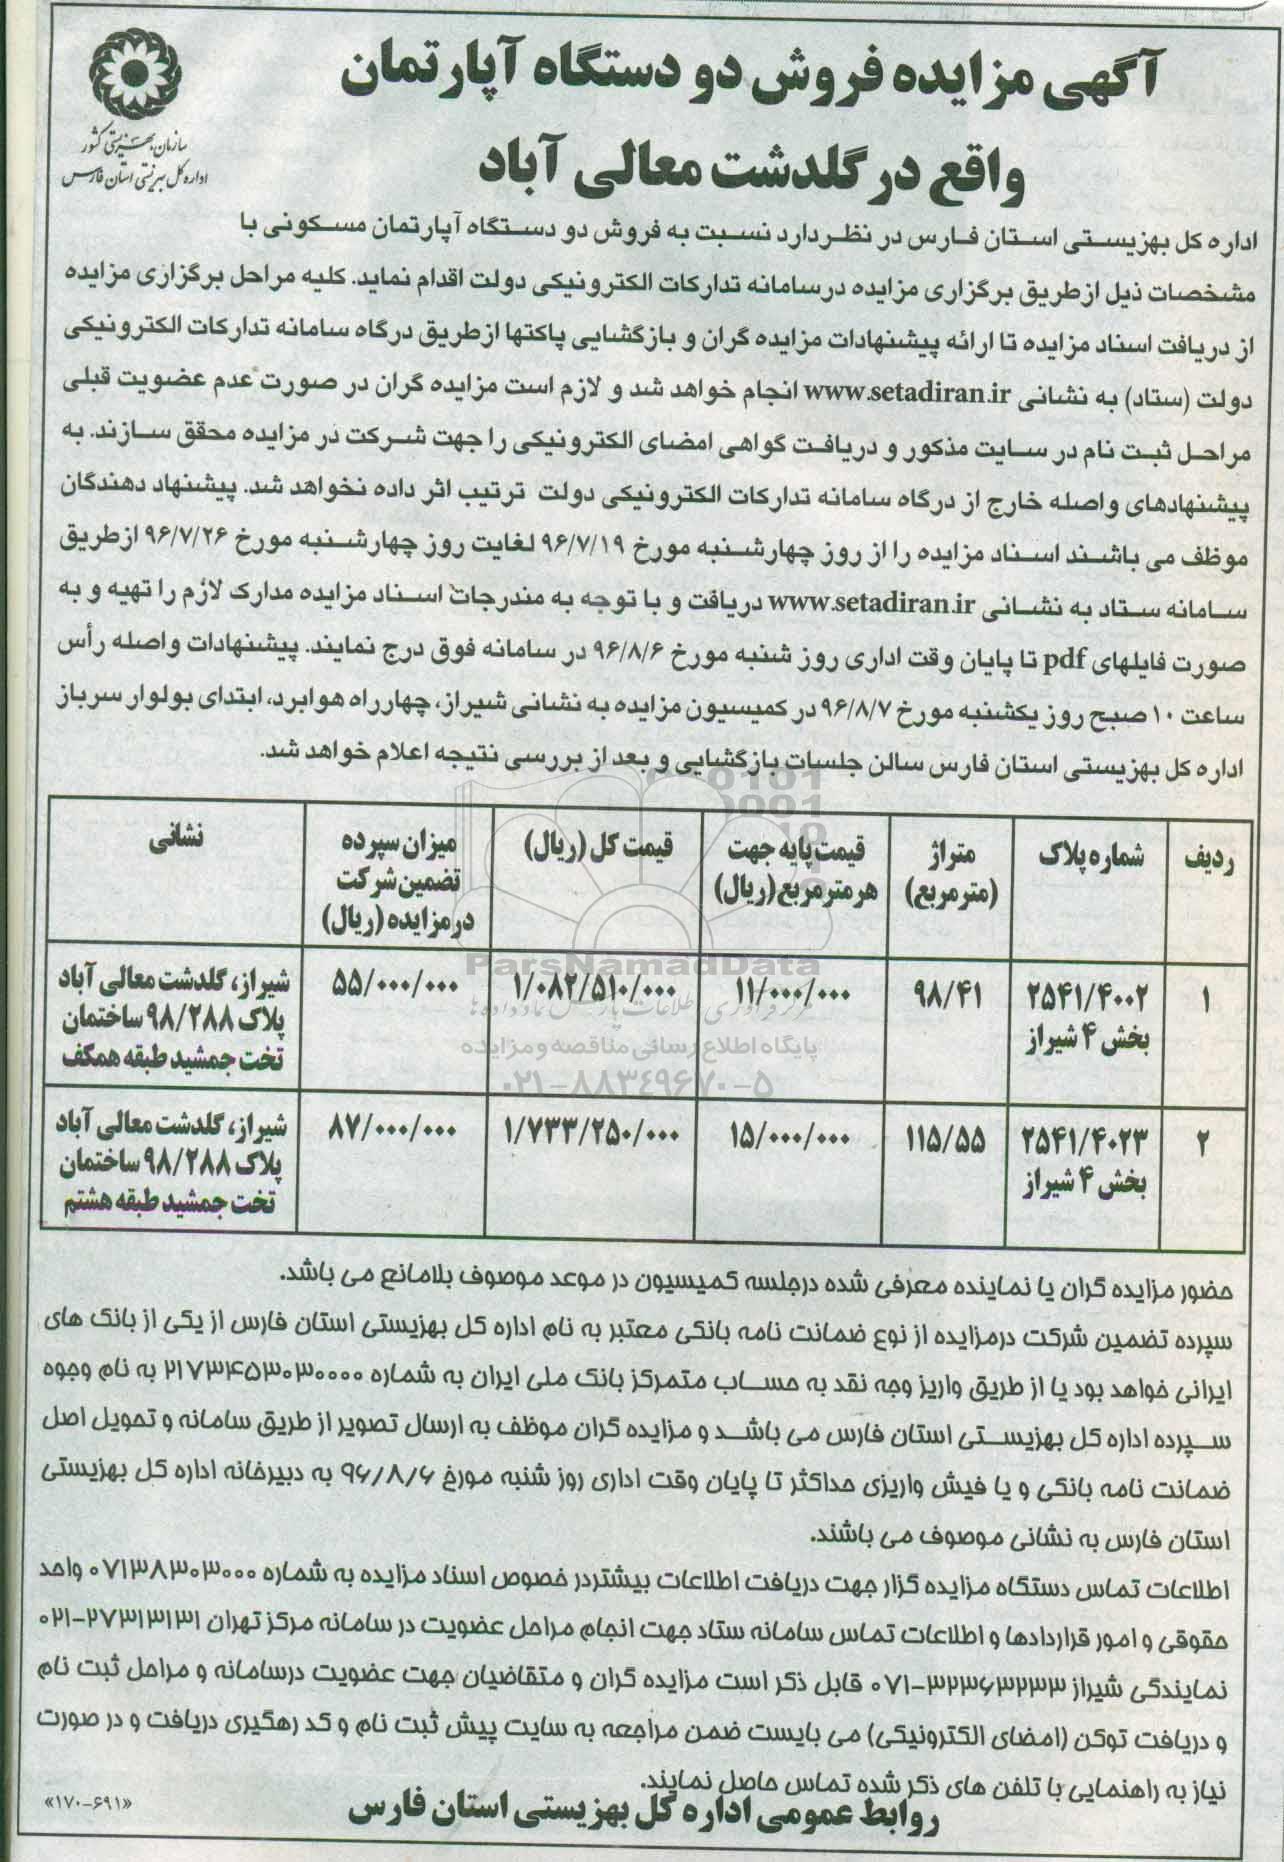 آگهی مزایده فروش دو دستگاه آپارتمان
واقع در گلدشت معالی آباد
سازمان بهزیستی کشور
اداره کل بهزیستی استان فارس
اداره کل بهزیستی استان فارس در نظردارد نسبت به فروش دو دستگاه آپارتمان مسکونی با
مشخصات ذیل ازطریق برگزاری مزایده درسامانه تدارکات الکترونیکی دولت اقدام نماید. کلیه مراحل برگزاری مزایده
از دریافت اسناد مزایده تا ارائه پیشنهادات مزایده گران و بازگشایی پاکتها ازطریق درگاه سامانه تدارکات الکترونیکی
دولت (ستاد) به نشانی www.setadiran.ir انجام خواهد شد و لازم است مزایده گران در صورت عدم عضویت قبلی
مراحل ثبت نام در سایت مذکور و دریافت گواهی امضای الکترونیکی را جهت شرکت در مزایده محقق سازند. به
پیشنهادهای واصله خارج از درگاه سامانه تدارکات الکترونیکی دولت ترتیب اثر داده نخواهد شد. پیشنهاد دهندگان
موظف می باشند اسناد مزایده را از روز چهارشنبه مورخ ۹۶/۷/۱۹ لغایت روز چهارشنبه مورخ ۹۶/۷/۲۶ ازطریق
سامانه ستاد به نشانی www.setadiran.ir دریافت و با توجه به مندرجات اسناد مزایده مدارک لازم را تهیه و به
صورت فایلهای pdf تا پایان وقت اداری روز شنبه مورخ ۹۶/۸/۶ در سامانه فوق درج نمایند. پیشنهادات واصله رأس
ساعت ۱۰ صبح روز یکشنبه مورخ ۹۶/۸/۷ در کمیسیون مزایده به نشانی شیراز، چهارراه هوابرد، ابتدای بولوار سرباز
اداره کل بهزیستی استان فارس سالن جلسات بازگشایی و بعد از بررسی نتیجه اعلام خواهد شد.
ردیف شماره پلاک متراژ (مترمربع) قیمت پایه جهت هرمترمربع (ریال) قیمت کل (ریال) میزان سپرده تضمین شرکت در مزایده (ریال) نشانی
۱ ۲۵۴۱/۴۰۰۲ بخش ۴ شیراز ۹۸/۴۱ ۱۱/۰۰۰/۰۰۰ ۱/۰۸۲/۵۱۰/۰۰۰ ۵۵/۰۰۰/۰۰۰ شیراز، گلدشت معالی آباد پلاک ۹۸/۲۸۸ ساختمان تخت جمشید طبقه همکف
۲ ۲۵۴۱/۴۰۲۳ بخش ۴ شیراز ۱۱۵/۵۵ ۱۵/۰۰۰/۰۰۰ ۱/۷۳۳/۲۵۰/۰۰۰ ۸۷/۰۰۰/۰۰۰ شیراز، گلدشت معالی آباد پلاک ۹۸/۲۸۸ ساختمان تخت جمشید طبقه هشتم
ParsNamadData
پایگاه اطلاع رسانی مناقصه و مزایده
۰۲۱-۸۸۳۴۹۶۷۰-۵
حضور مزایده گران یا نماینده معرفی شده درجلسه کمیسیون در موعد موصوف بلامانع می باشد.
سپرده تضمین شرکت درمزایده از نوع ضمانت نامه بانکی معتبر به نام اداره کل بهزیستی استان فارس از یکی از بانک های
ایرانی خواهد بود یا از طریق واریز وجه نقد به حساب متمرکز بانک ملی ایران به شماره ۲۱۷۳۴۵۳۰۳۰۰۰۰ به نام وجوه
سپرده اداره کل بهزیستی استان فارس می باشد و مزایده گران موظف به ارسال تصویر از طریق سامانه و تحویل اصل
ضمانت نامه بانکی و یا فیش واریزی حداکثر تا پایان وقت اداری روز شنبه مورخ ۹۶/۸/۶ به دبیرخانه اداره کل بهزیستی
استان فارس به نشانی موصوف می باشند.
اطلاعات تماس دستگاه مزایده گزار جهت دریافت اطلاعات بیشتردر خصوص اسناد مزایده به شماره ۰۷۱۳۸۳۰۳۰۰۰ واحد
حقوقی و امور قراردادها و اطلاعات تماس سامانه ستاد جهت انجام مراحل عضویت در سامانه مرکز تهران ۲۷۳۱۳۱۳۱-۰۲۱
نمایندگی شیراز ۳۲۳۶۳۲۳۳-۰۷۱ قابل ذکر است مزایده گران و متقاضیان جهت عضویت درسامانه و مراحل ثبت نام
و دریافت توکن (امضای الکترونیکی) می بایست ضمن مراجعه به سایت پیش ثبت نام و کد رهگیری دریافت و در صورت
نیاز به راهنمایی با تلفن های ذکر شده تماس حاصل نمایند.
روابط عمومی اداره کل بهزیستی استان فارس
«۱۷۰-۶۹۱»